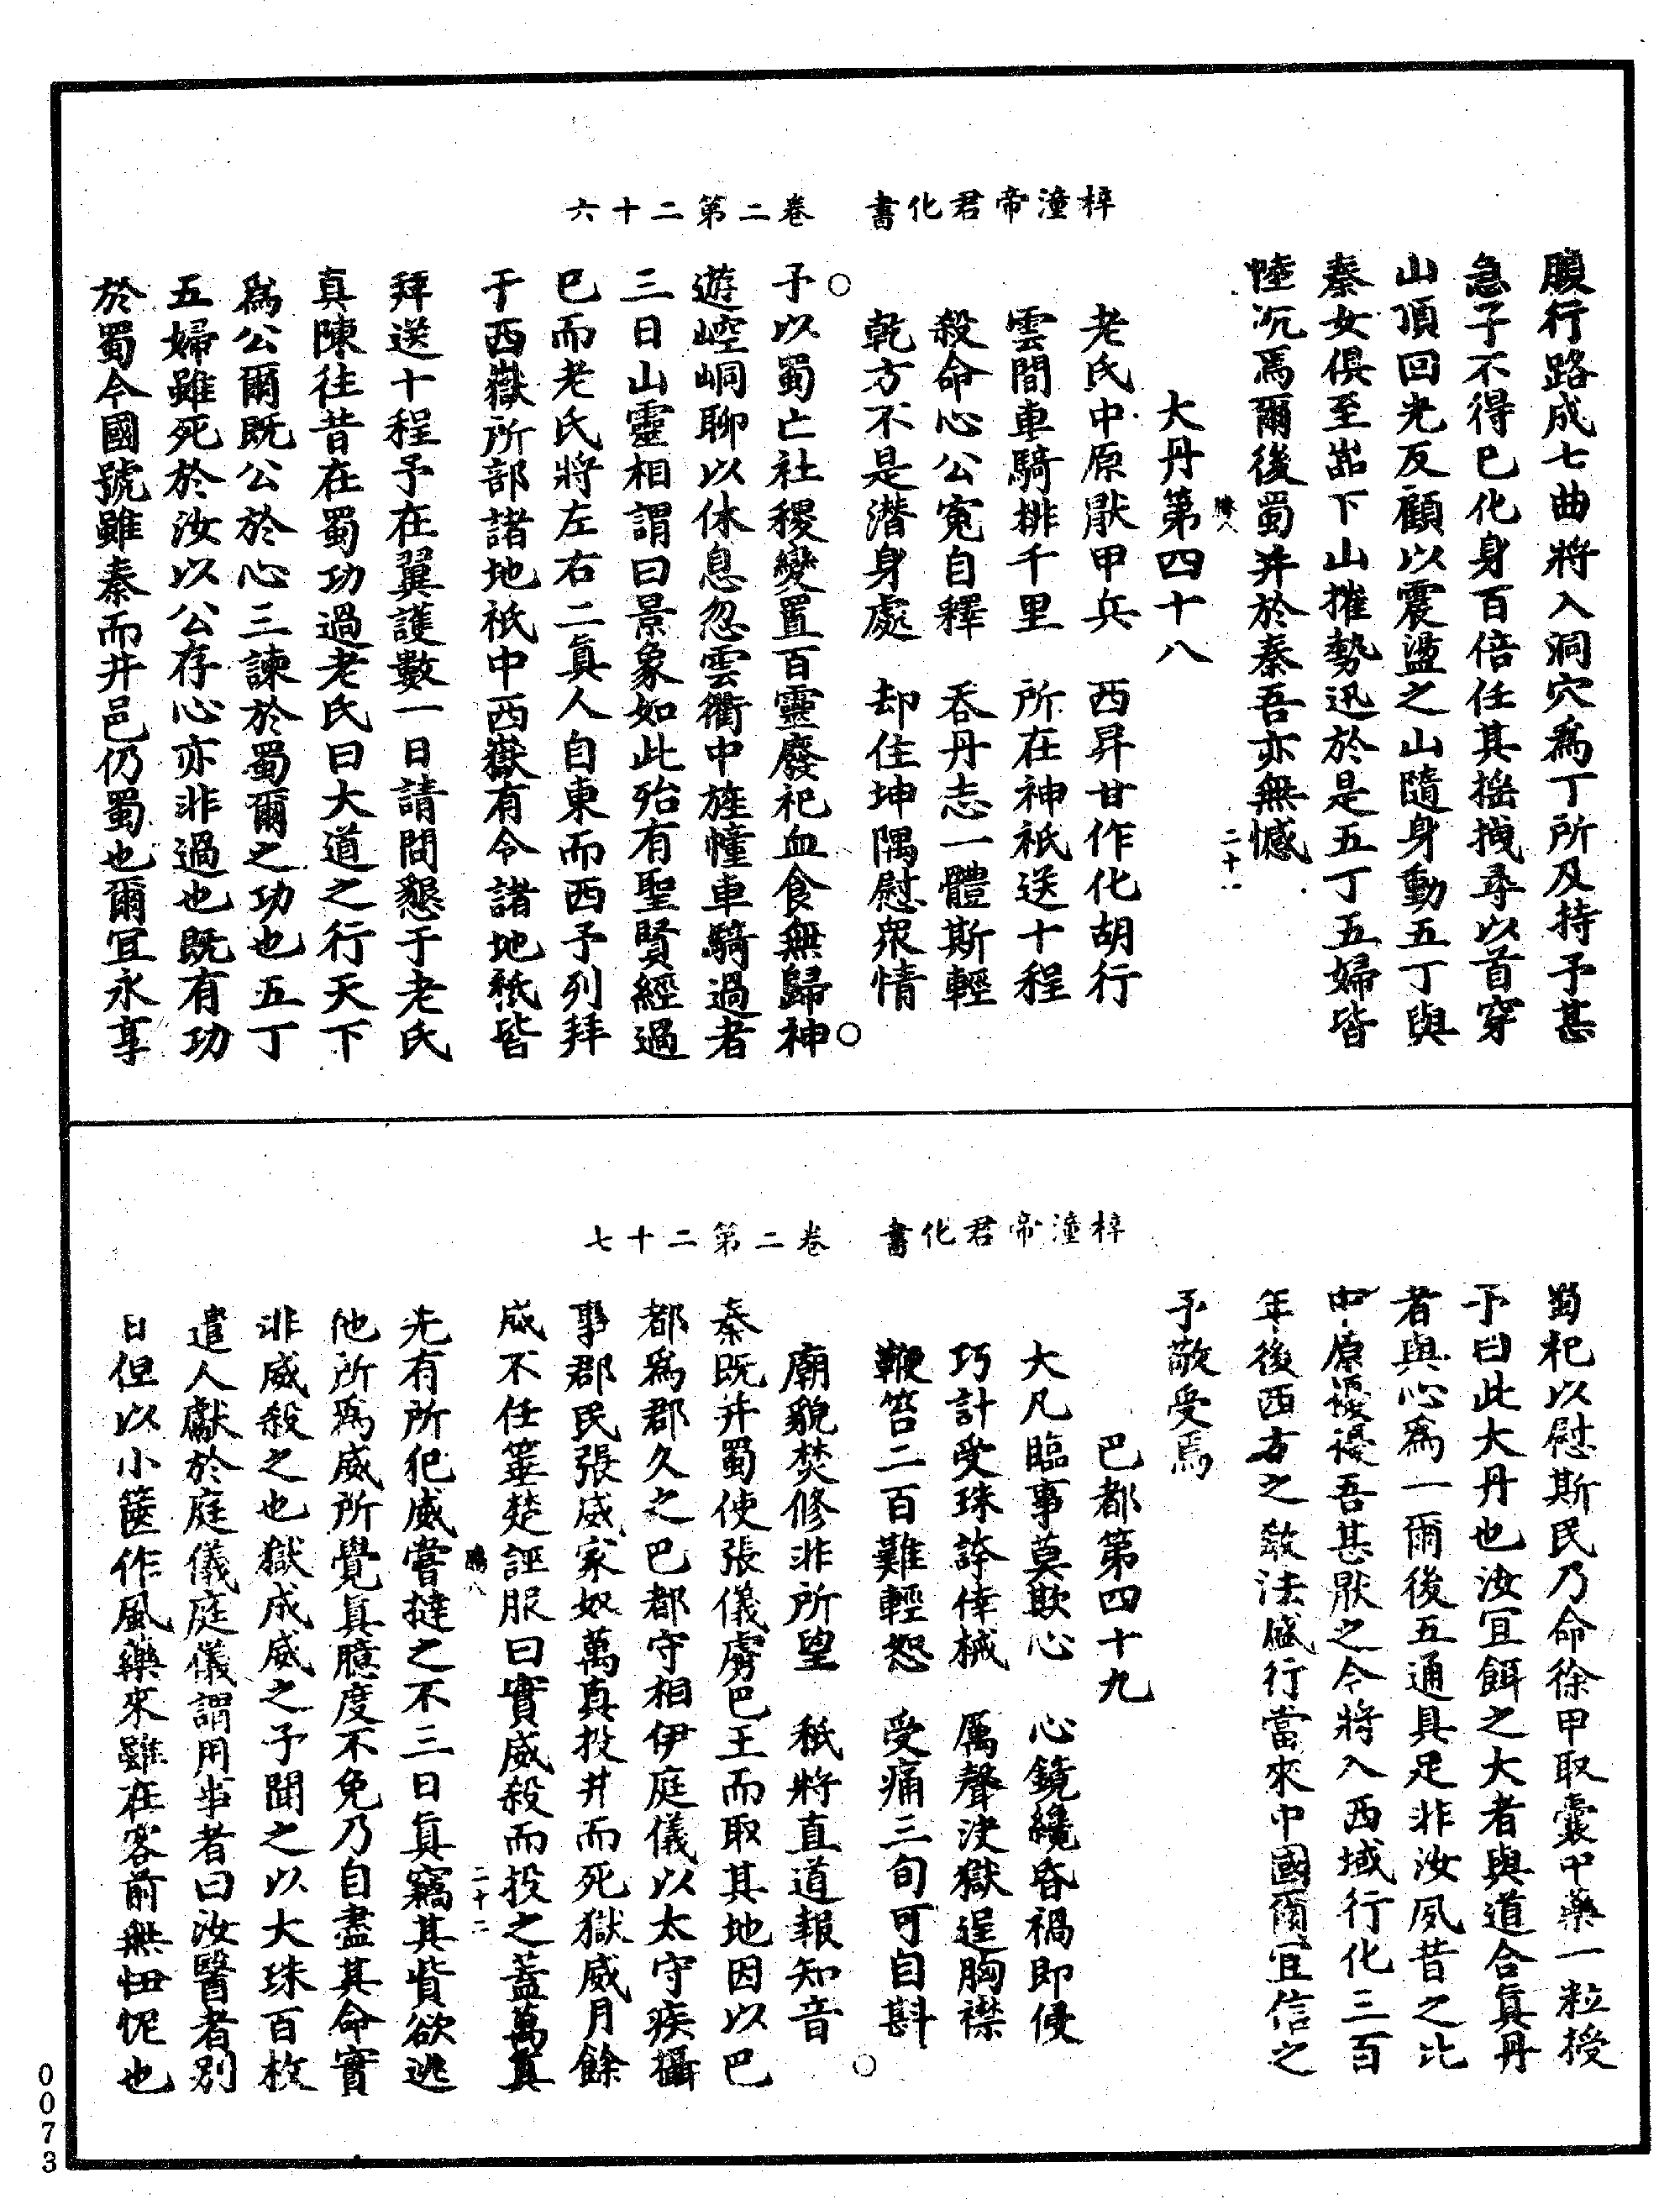 梓潼帝君化書　卷二第二十六
腹行路成七曲將入洞穴爲丁所及持予甚
急予不得已化身百倍任其摇拽尋以首穿
山頂回光反顧以震盪之山隨身動五丁與
秦女俱至嵓下山摧勢迅於是五丁五婦皆
陸沉焉爾後蜀并於秦吾亦無憾
騰八　二十一
大丹第四十八
老氏中原厭甲兵　西昇甘作化胡行
雲間車騎排千里　所在神祇送十程
殺命心公寃自釋　吞丹志一體斯輕
乾方不是潛身處　却住坤隅慰衆情
予以蜀亡社稷變置百靈廢祀血食無歸神
遊崆峒聊以休息忽雲衢中旌幢車騎過者
三日山靈相謂曰景象如此殆有聖賢經過
已而老氏將左右二真人自東而西予列拜
于西嶽所部諸地祇中西嶽有令諸地祇皆
拜送十程予在翼護數一日請間懇于老氏
真陳往昔在蜀功過老氏曰大道之行天下
爲公爾既公於心三諫於蜀爾之功也五丁
五婦雖死於汝以公存心亦非過也既有功
於蜀今國號雖秦而井邑仍蜀也爾宜永享
梓潼帝君化書　卷二第二十七
蜀祀以慰斯民乃命徐甲取囊中藥一粒授
予曰此大丹也汝宜餌之大者與道合真丹
者與心爲一爾後五通具足非汝夙昔之比
中原擾擾吾甚厭之今將入西域行化三百
年後西方之教法盛行當來中國爾宜信之
予敬受焉
巴都第四十九
大凡臨事莫欺心　心鏡纔昏禍即侵
巧計受珠誇倖械　厲聲決獄逞胸襟
鞭笞二百難輕恕　受痛三旬可自斟
廟貌焚修非所望　秖將直道報知音
秦既并蜀使張儀虜巴王而取其地因以巴
都爲郡久之巴都守相伊庭儀以太守疾攝
事郡民張威家奴萬真投井而死獄威月餘
成不任箠楚誣服曰實威殺而投之蓋萬真
騰八　二十二
先有所犯威嘗撻之不三日真竊其貲欲逃
他所爲威所覺真臆度不免乃自盡其命實
非威殺之也獄成威之子聞之以大珠百枚
遣人獻於庭儀庭儀謂用事者曰汝醫者別
日但以小篋作風藥來雖在客前無忸怩也
0073